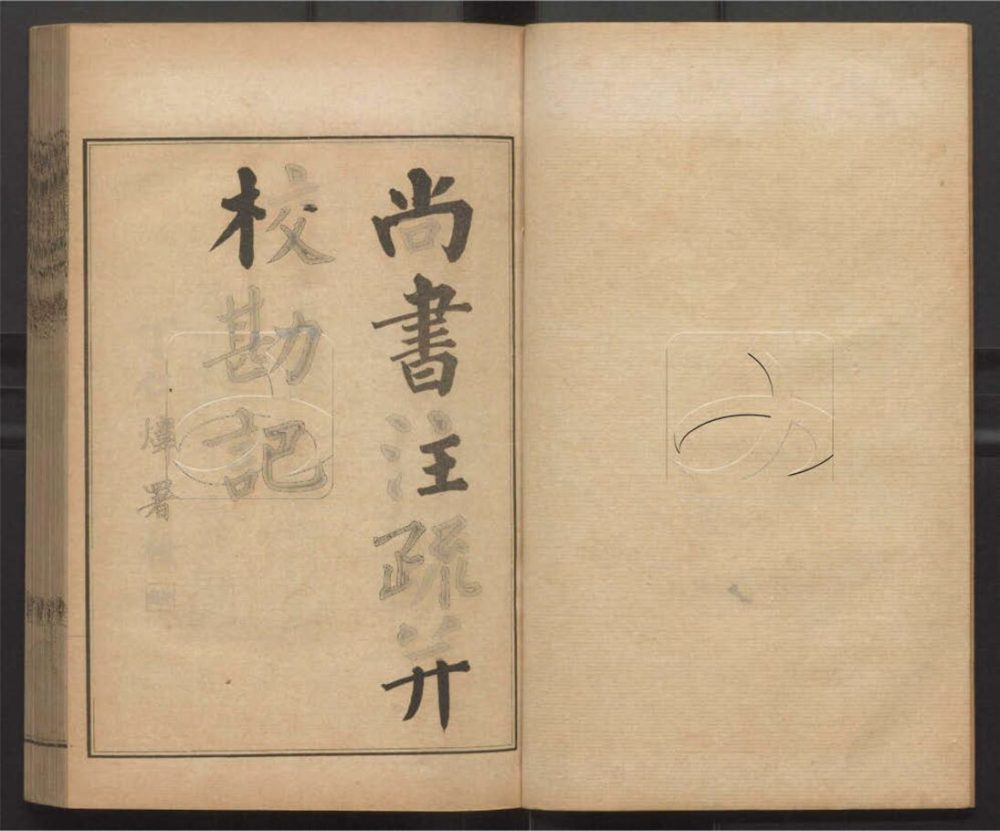 尚書注疏并
校勘記
署